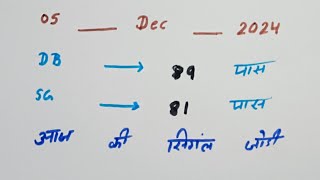 05 ___ Dec ___ 2024
DB → 89 पास
SG → 81 पास
आज की सिगंल जोडी